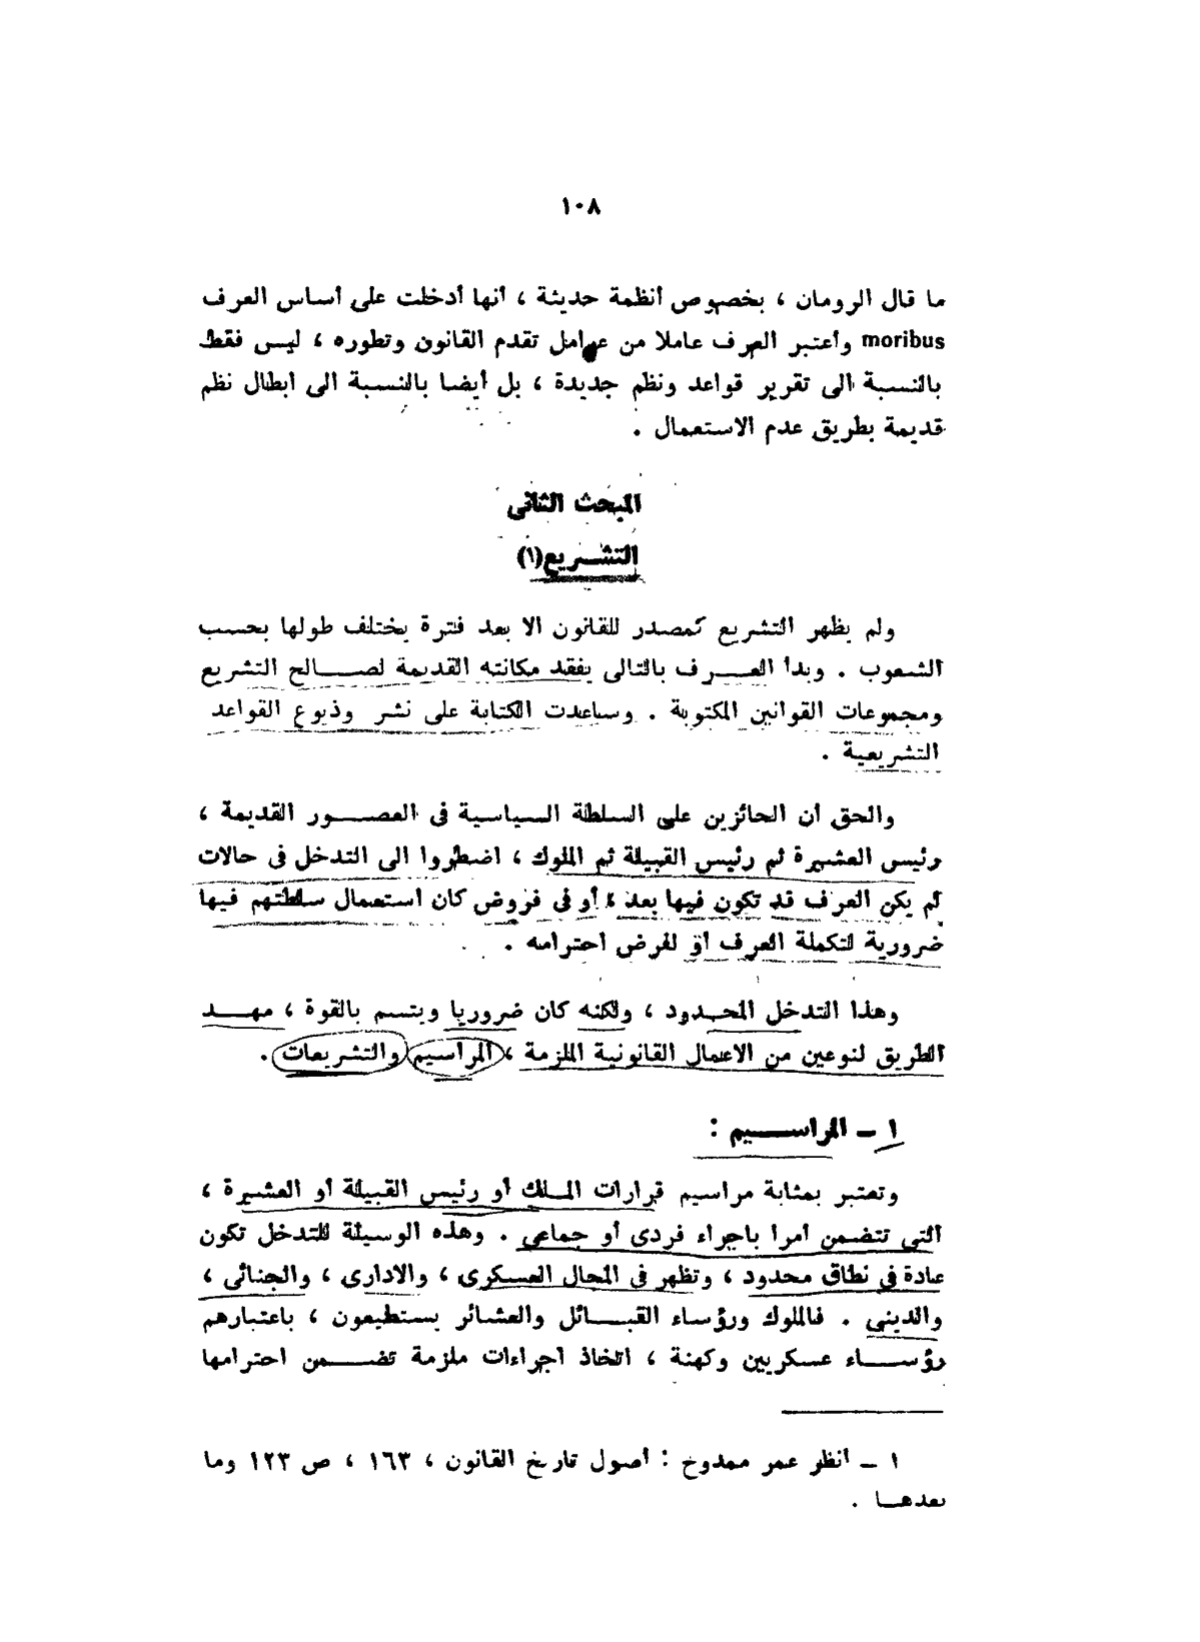 ١٠٨
ما قال الرومان ، بخصوص أنظمة حديثة ، أنها أدخلت على أساس العرف
moribus وأعتبر العرف عاملا من عوامل تقدم القانون وتطوره ، ليس فقط
بالنسبة الى تقرير قواعد ونظم جديدة ، بل أيضا بالنسبة الى ابطال نظم
قديمة بطريق عدم الاستعمال .
المبحث الثانى
التشـــريع(١)
ولم يظهر التشريع كمصدر للقانون الا بعد فترة يختلف طولها بحسب
الشعوب . وبدا العـــرف بالتالى يفقد مكانته القديمة لصـــالح التشريع
ومجموعات القوانين المكتوبة . وساعدت الكتابة على نشر وذيوع القواعد
التشريعية .
والحق أن الحائزين على السلطة السياسية فى العصـــور القديمة ،
رئيس العشيرة ثم رئيس القبيلة ثم الملوك ، اضطروا الى التدخل فى حالات
لم يكن العرف قد تكون فيها بعد ، أو فى فروض كان استعمال سلطتهم فيها
ضرورية لتكملة العرف أو لفرض احترامه .
وهذا التدخل المحـدود ، ولكنه كان ضروريا ويتسم بالقوة ، مهـــد
الطريق لنوعين من الاعمال القانونية الملزمة ، المراسيم والتشريعات .
١ ــ المراســـيم :
وتعتبر بمثابة مراسيم قرارات الملك أو رئيس القبيلة أو العشيرة ،
التى تتضمن أمرا باجراء فردى أو جماعى . وهذه الوسيلة للتدخل تكون
عادة فى نطاق محدود ، وتظهر فى المجال العسكرى ، والادارى ، والجنائى ،
والدينى . فالملوك ورؤساء القبـــائل والعشائر يستطيعون ، باعتبارهم
رؤســـاء عسكريين وكهنة ، اتخاذ اجراءات ملزمة تضـــمن احترامها
١ ــ أنظر عمر ممدوح : أصول تاريخ القانون ، ١٦٣ ، ص ١٢٣ وما
بعدهـا .